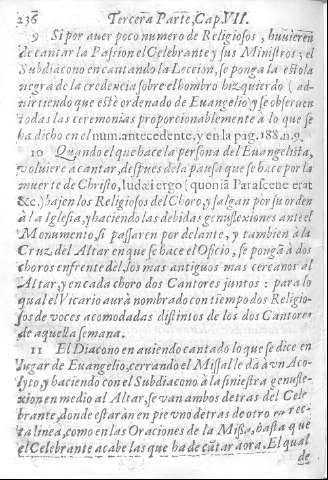 236 Tercera Parte, Cap. VII.
9 Si por auer poco numero de Religiosos, huuieren
de cantar la Passion el Celebrante y sus Ministros; el
Subdiacono en cantando la Leccion, se ponga la estola
negra de la credencia sobre el hombro hizquierdo (ad-
uirtiendo que estè ordenado de Euangelio) y se obseruen
todas las ceremonias proporcionablemente à lo que se
ha dicho en el num. antecedente, y en la pag. 188. n. 9.
10 Quando el que hace la persona del Euangelista,
voluiere à cantar, despues de la pausa que se hace por la
muerte de Christo, Iudæi ergo (quoniã Parasceue erat
&c.) bajen los Religiosos del Choro, y salgan por su orden
à la Iglesia, y haciendo las debidas genuflexiones ante el
Monumento, si passaren por delante, y tambien à la
Cruz del Altar en que se hace el Oficio, se pongã à dos
choros enfrente del, los mas antiguos mas cercanos al
Altar, y en cada choro dos Cantores juntos: para lo
qual el Vicario aurà nombrado con tiempo dos Religio-
sos de voces acomodadas distintos de los dos Cantores
de aquella semana.
11 El Diacono en auiendo cantado lo que se dice en
lugar de Euangelio, cerrando el Missal le dà à vn Aco-
lyto, y haciendo con el Subdiacono à la siniestra genufle-
xion en medio al Altar, se van ambos detras del Cele
brante, donde estaràn en pie vno detras de otro en rec-
ta linea, como en las Oraciones de la Missa, hasta que
el Celebrante acabe las que ha de cãtar aora. El qual
de